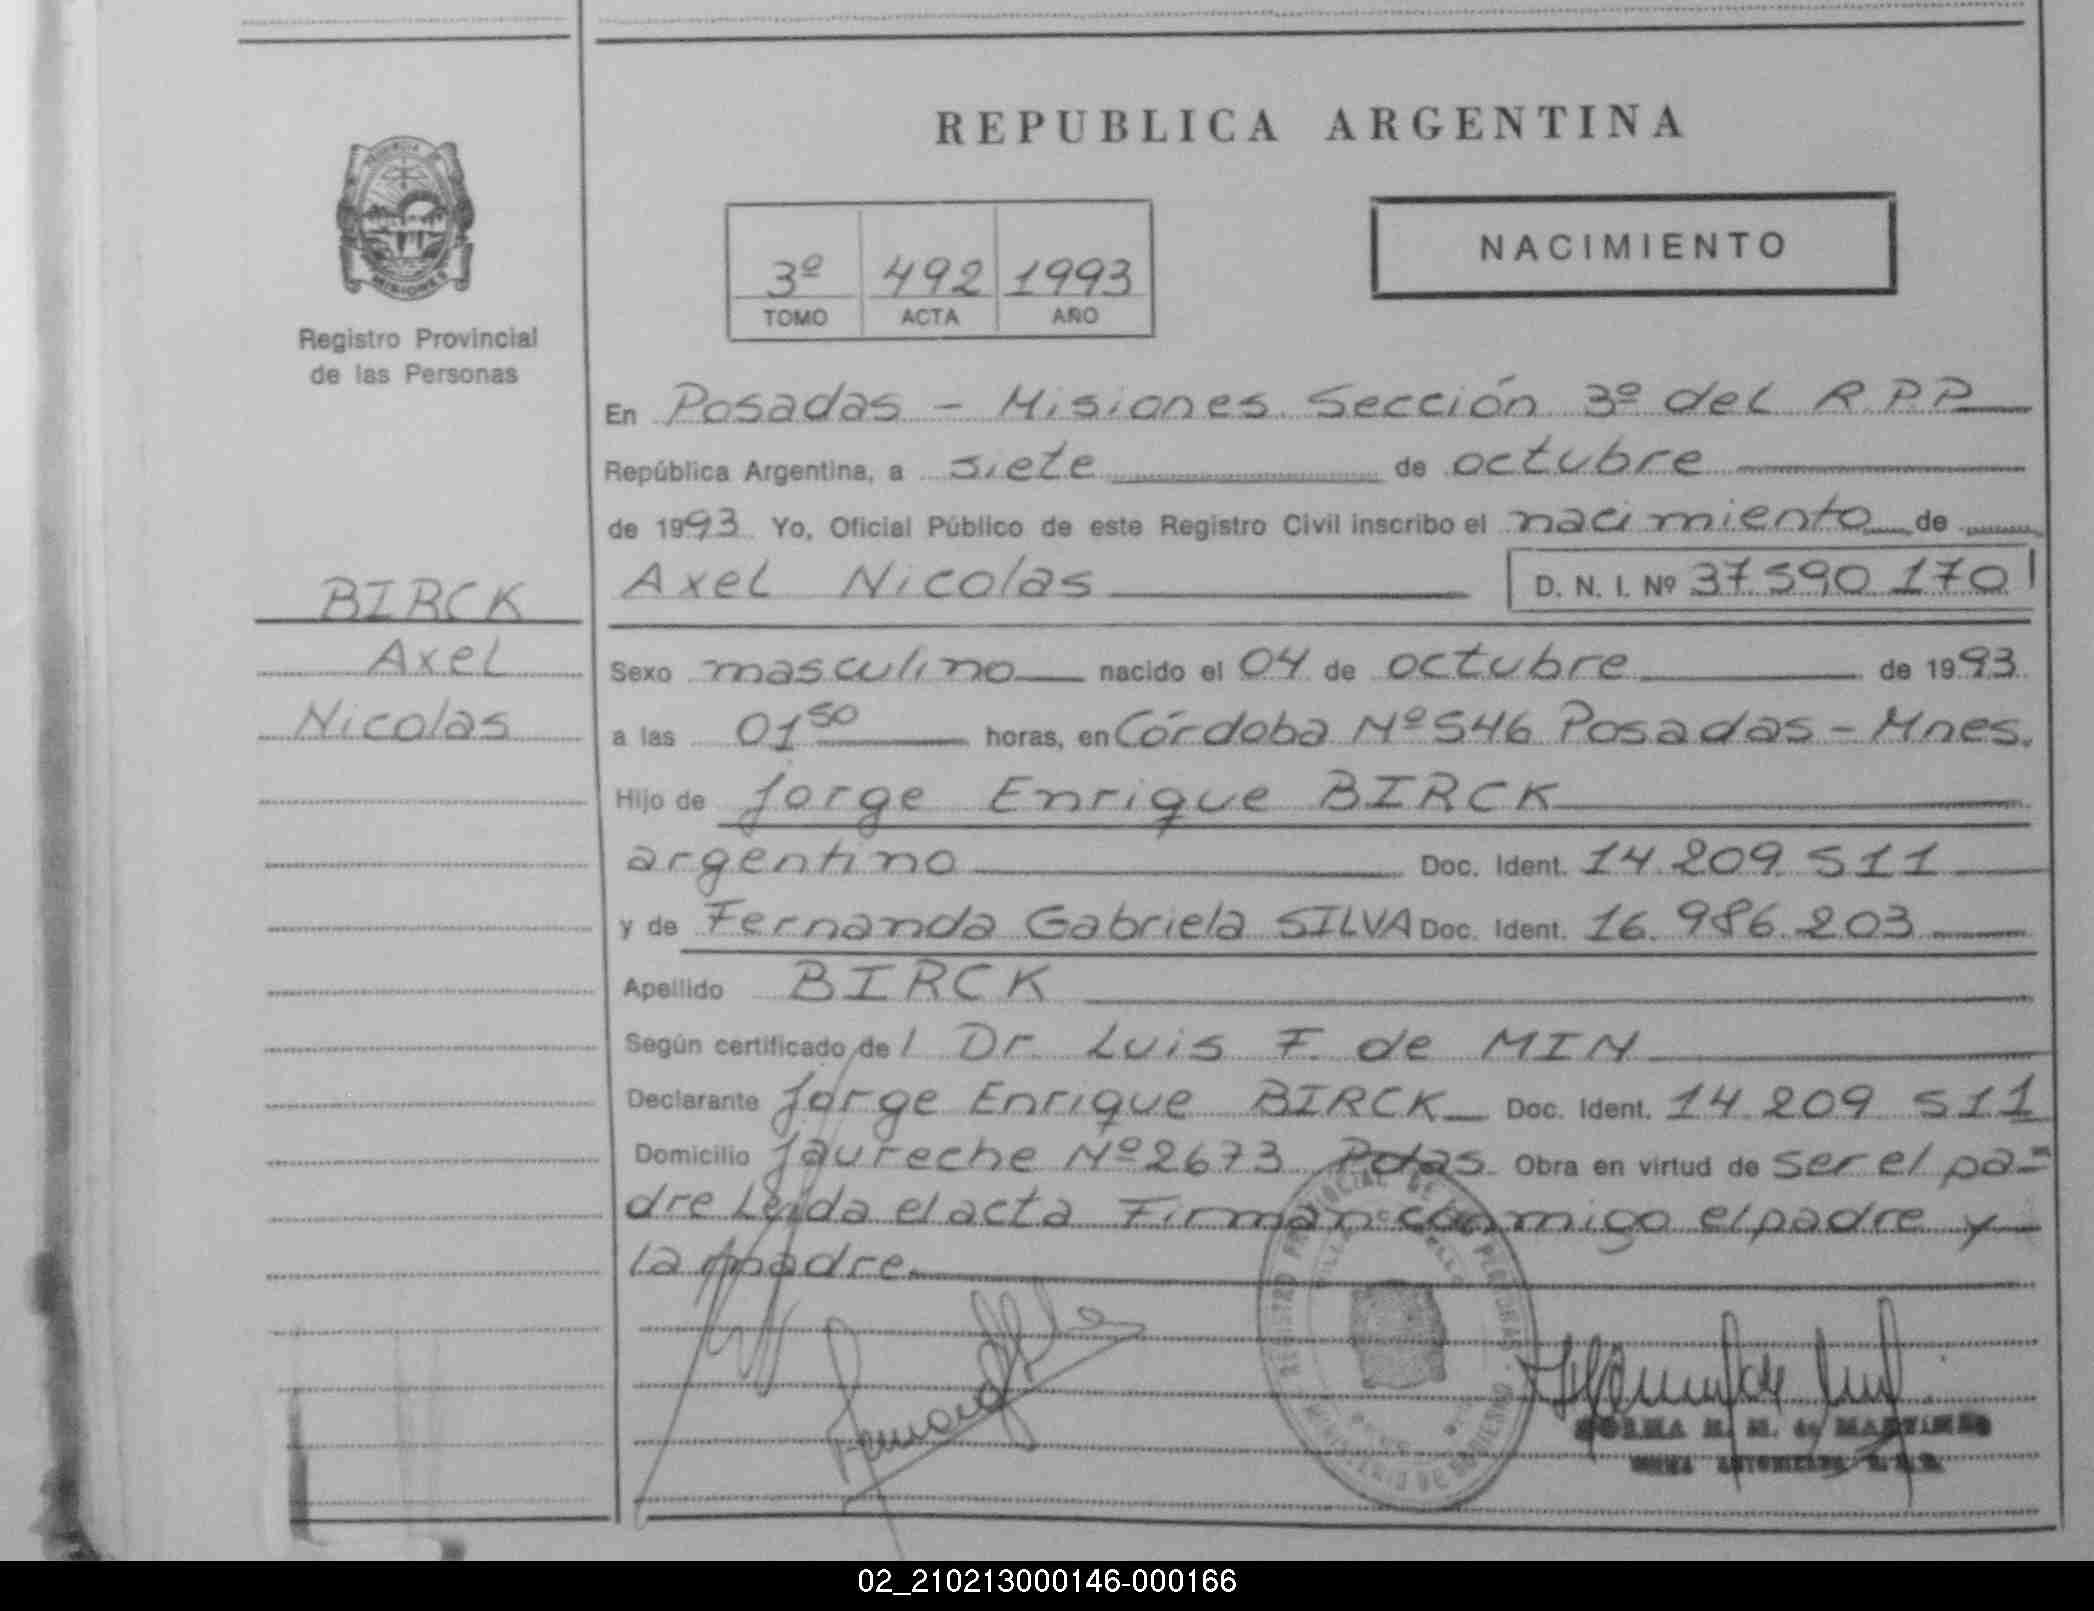 REPUBLICA ARGENTINA
NACIMIENTO
3º 492 1993
TOMO ACTA AÑO
PROVINCIA DE
MISIONES
Registro Provincial
de las Personas
En Posadas - Misiones Sección 3º del R.P.P.
República Argentina, a siete de octubre
de 1993 Yo, Oficial Público de este Registro Civil inscribo el nacimiento de
Axel Nicolas D. N. I. Nº 37.590.170
BIRCK
Axel
Nicolas
Sexo masculino nacido el 04 de octubre de 1993
a las 01 50 horas, en Córdoba Nº 546 Posadas - Mnes.
Hijo de Jorge Enrique BIRCK
argentino Doc. Ident. 14.209.511
y de Fernanda Gabriela SILVA Doc. Ident. 16.986.203
Apellido BIRCK
Según certificado de l Dr. Luis F. de MIN
Declarante Jorge Enrique BIRCK Doc. Ident. 14.209.511
Domicilio Jaureche Nº 2673 Pdas. Obra en virtud de ser el pa=
dre Leida el acta Firman conmigo el padre y
la madre.
REGISTRO PROVINCIAL DE LAS PERSONAS
MINISTERIO DE GOBIERNO
NORMA H. M. de MARTINEZ
02_210213000146-000166